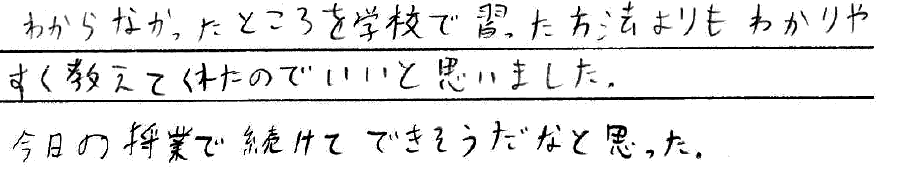 わからなかったところを学校で習った方法よりもわかりや
すく教えてくれたのでいいと思いました.
今日の授業で続けてできそうだなと思った.